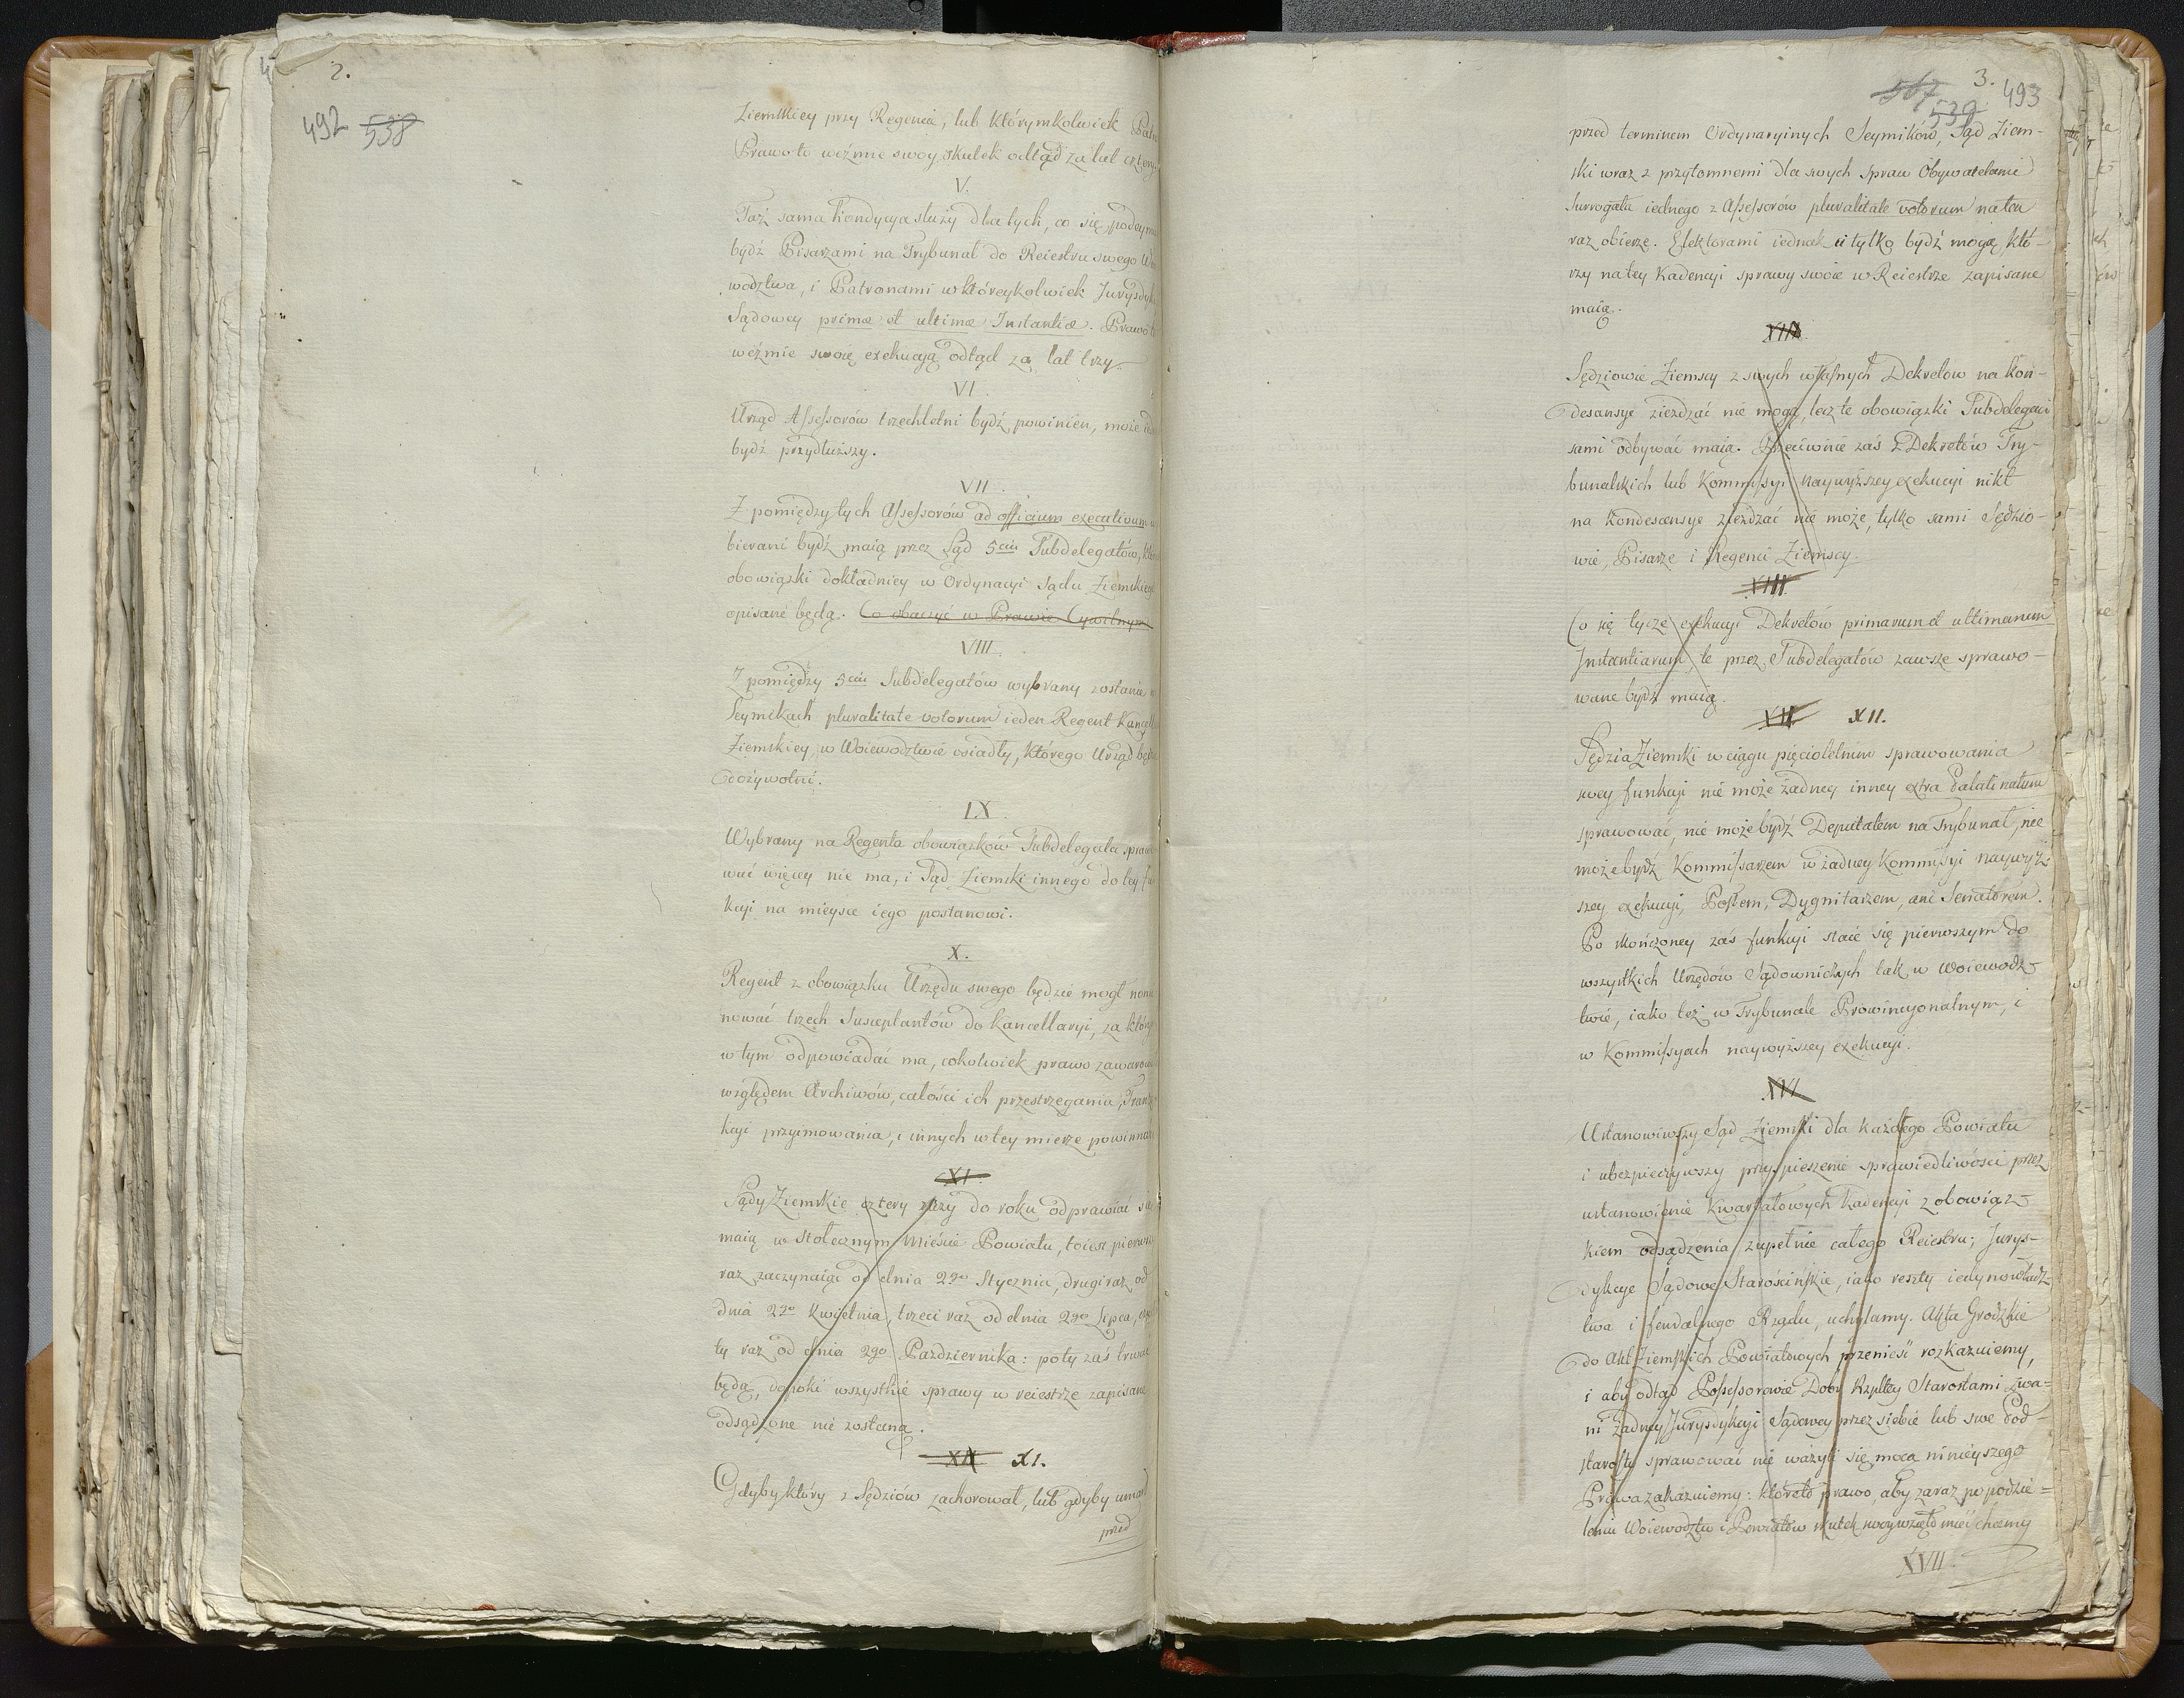 2.
492 538
Ziemskiey przy Regencie, lub którymkolwiek
Prawo to weźmie swoy skutek odtąd za lat cztery
V.
Taż sama kondycya służy dla tych, co się podeym
bydź Pisarzami na Trybunał do Reiestru swego Wo
wodztwa, i Patronami w któreykolwiek Jurysdyk
Sądowey primæ et ultimæ Instantiæ. Prawo t
weźmie swoię exekucyą odtąd za lat trzy.
VI.
Urząd Assessorów trzechletni bydź powinien, może
bydź przydłuższy.
VII.
Z pomiędzy tych Assessorów ad officium executivum w
bierani bydź maią przez Sąd 5ciu Subdelegatów,
obowiązki dokładniey w Ordynacyi Sądu Ziemskiego
opisane będą. Co obaczyć w Prawie Cywilnym
VIII.
Z pomiędzy 5ciu Subdelegatów wybrany zostanie
Seymikach pluralitate votorum ieden Regent Kancell
Ziemskiey, w Woiewodztwie osiadły, którego Urząd będ
dożywotni.
IX.
Wybrany na Regenta obowiązków Subdelegata spraw
wać więcey nie ma, i Sąd Ziemski innego do tey fu
kcyi na mieysce iego postanowi.
X.
Regent z obowiązku Urzędu swego będzie mogł nomi
nować trzech Susceptantów do Kancellaryi, za któr
w tym odpowiadać ma, cokolwiek prawo zawarow
względem Archiwów, całości ich przestrzegania, Tranz
kcyi przyimowania, i innych w tey mierze powinno
XI.
Sądy Ziemskie cztery razy do roku odprawiać się
maią w Stołecznym Mieście Powiatu, to iest pierwsz
raz zaczynaiąc od dnia 2go Stycznia, drugi raz od
dnia 2go Kwietnia, trzeci raz od dnia 2go Lipca, czw
ty raz od dnia 2go Pazdziernika: poty zaś trwać
będą, dopóki wszystkie sprawy w reiestrze zapisane
odsądzone nie zostaną.
XII XI.
Gdyby który z Sędziów zachorował, lub gdyby umarł
przed
3.
567 539 493
przed terminem Ordynaryinych Seymików, Sąd Ziem-
ski wraz z przytomnemi dla swych spraw Obywatelami
Surrogata iednego z Assessorów pluralitate votorum na ten
raz obierze. Elektorami iednak ci tylko bydź mogą któ-
rzy na tey Kadencyi sprawy swoie w Reiestrze zapisane
maią.
XIII.
Sędziowie Ziemscy z swych własnych Dekretów na Kon-
descensye zieżdzać nie mogą, lecz te obowiązki Subdelegaci
sami odbywać maią. Przeciwnie zaś z Dekretów Try-
bunalskich lub Kommissyi naywyższey exekucyi nikt
na Kondescensye zieżdzać nie może, tylko sami Sędzio-
wie, Pisarze i Regenci Ziemscy.
XIII
Co się tycze exekucyi Dekretów primarum et ultimarum
Instantiarum, te przez Subdelegatów zawsze sprawo-
wane bydź maią.
XII.
Sędzia Ziemski w ciągu pięcioletnim sprawowania
swey funkcyi nie może żadney inney extra Palatinatum
sprawować, nie może bydź Deputatem na Trybunał, nie
może bydź Kommissarzem w żadney Kommissyi naywyż-
szey exekucyi, Posłem, Dygnitarzem, ani Senatorem.
Po skończoney zaś funkcyi staie się pierwszym do
wszystkich Urzędów Sądowniczych tak w Woiewodz-
twie, iako też w Trybunale Prowincyonalnym, i
w Kommissyach naywyższey exekucyi.
XVI
Ustanowiwszy Sąd Ziemski dla każdego Powiatu
i ubezpieczywszy przyspieszenie sprawiedliwości przez
ustanowienie Kwartałowych Kadencyi z obowiąz-
kiem odsądzenia zupełnie całego Reiestru; Jurys-
dykcye Sądowe Starościńskie, iako reszty iedynowładz-
twa i feudalnego Rządu, uchylamy. Akta Grodzkie
do Akt Ziemskich Powiatowych przenieść rozkazuiemy,
i aby odtąd Possessorowie Dóbr Rzpltey Starostami zwa-
ni żadney Jurysdykcyi Sądowey przez siebie lub swe Pod-
starosty sprawować nie ważyli się mocą ninieyszego
Prawa zakazuiemy: któreto prawo, aby zaraz po podzie-
leniu Woiewodztw i Powiatów skutek swoy wzięło mieć chcemy
XVII.